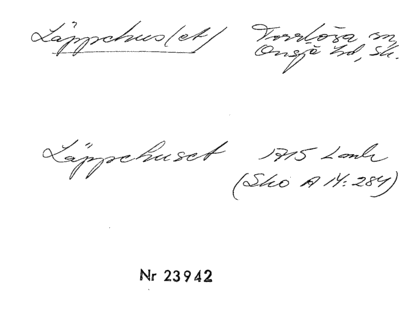 Läppehus/et/ Torrlösa sn,
Onsjö hd, Sk.
Läppehuset 1715 Lantm
(Sko A 14:284)
Nr 23942